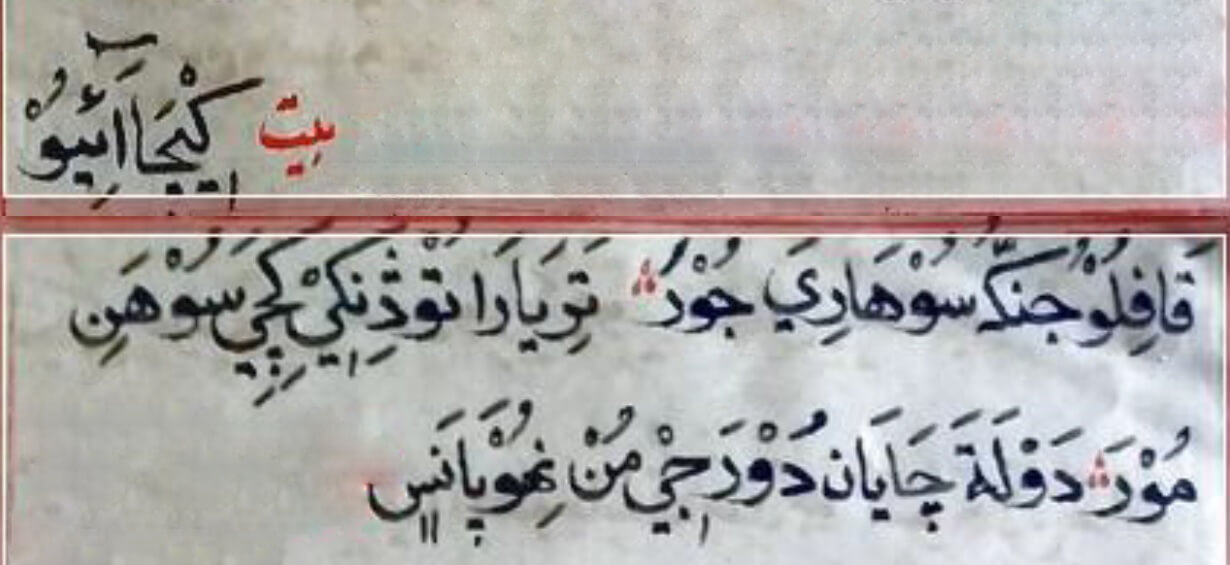 بيت ڪيچا آئيو
قَافِلُوْ جنگ سُوْهَارِي جُوْرُ ؞ تِرِيَارَا تُوْڏِنکِيْ کِچِي سُوْهَنِ
مُوْرَ ؞ دَوْلَةَ چَايَان دُوْرَ جِيْ مُنْ نِھُوْپَانَسِ